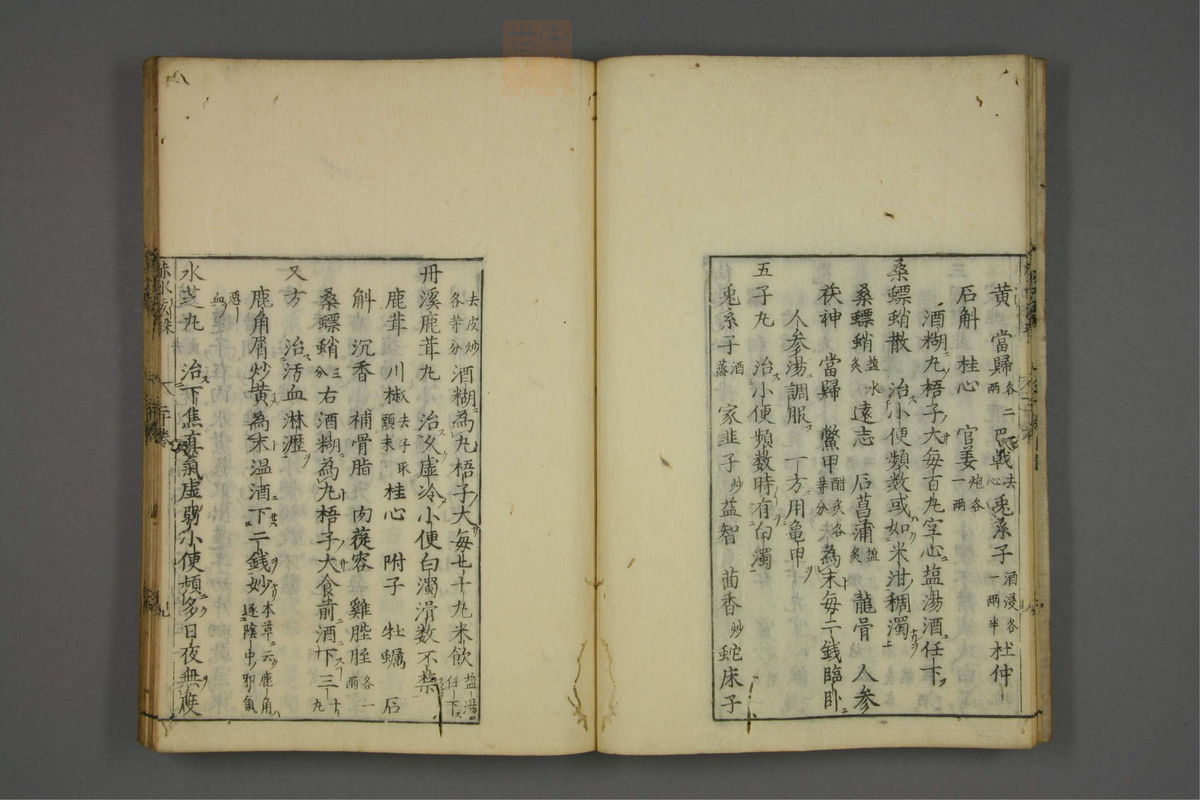 黄 當歸各二兩 巴戟去心 兎糸子酒浸各一兩半 杜仲
石斛 桂心 官姜炮各一兩
酒糊丸梧子大每百丸空心塩湯酒任下
桑螵蛸散 治小便頻数或如米泔稠濁
桑螵蛸塩水炙 遠志 石菖蒲塩炙 龍骨 人參
茯神 當歸 鱉甲酣炙各等分 為末每二錢臨卧
人參湯調服 一方用亀甲
五子丸 治小便頻数時有白濁
兎糸子酒蒸 家韭子炒 益智 茴香炒 蛇床子
去皮炒各等分 酒糊為丸梧子大每七十丸米飲塩湯任下
丹溪鹿茸丸 治久虛冷小便白濁滑数不禁
鹿茸 川椒去子取頭末 桂心 附子 牡蠣 石
斛 沉香 補骨脂 肉蓯容 雞膍胵各一兩
桑螵蛸三分 右酒糊為丸梧子大食前酒下三十丸
又方 治汚血淋瀝
鹿角屑炒黄為末温酒下二錢妙本草云鹿角逐陰中邪氣惡血
水芝丸 治下焦真氣虛弱小便頻多日夜無度